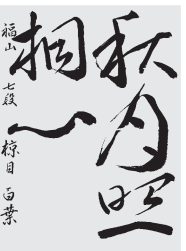 秋月照
桐心
福山 七段 椋目 百葉